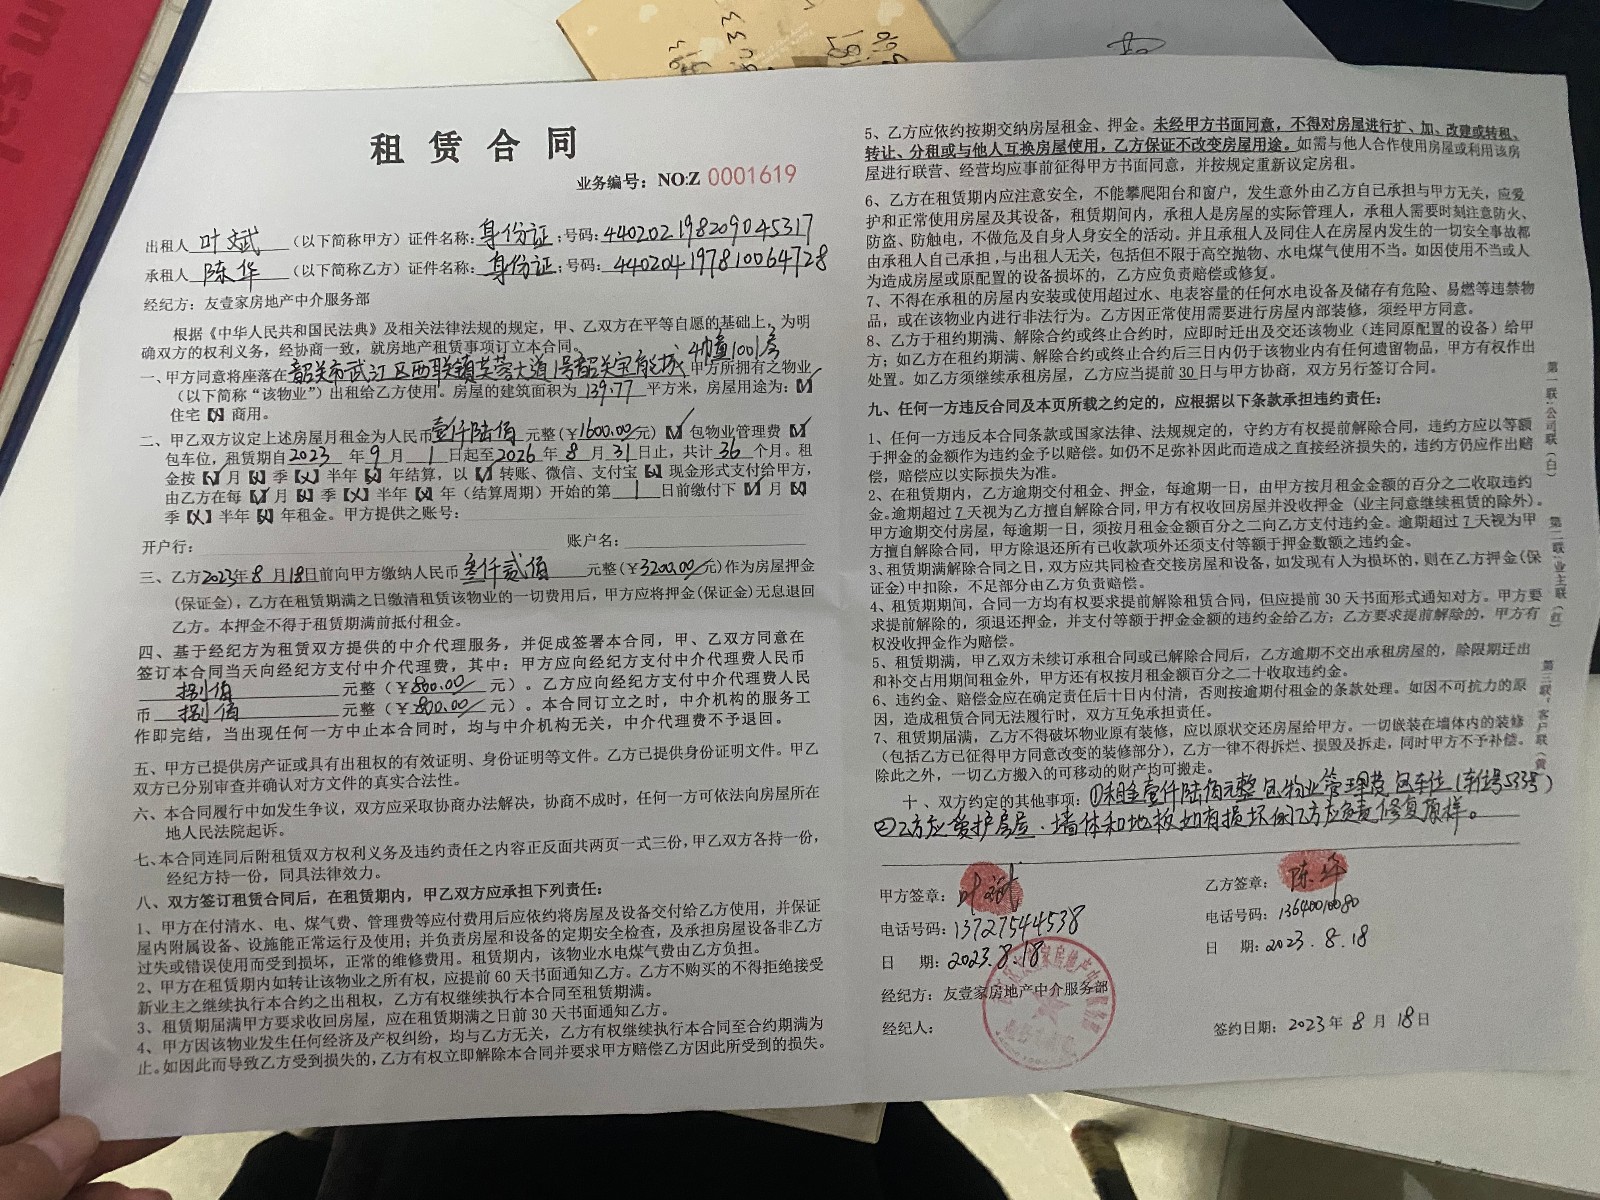 租赁合同
业务编号：NO:Z 0001619
出租人 叶斌 （以下简称甲方）证件名称：身份证；号码：440202198209045317
承租人 陈华 （以下简称乙方）证件名称：身份证；号码：440204197810064728
经纪方：友壹家房地产中介服务部
根据《中华人民共和国民法典》及相关法律法规的规定，甲、乙双方在平等自愿的基础上，为明
确双方的权利义务，经协商一致，就房地产租赁事项订立本合同。
一、甲方同意将座落在韶关市武江区西联镇芙蓉大道1号韶关宝能城4幢1001房 甲方所拥有之物业
（以下简称“该物业”）出租给乙方使用。房屋的建筑面积为 139.77 平方米，房屋用途为：【√】
住宅【X】商用。
二、甲乙双方议定上述房屋月租金为人民币壹仟陆佰 元整（￥1600.00元）【√】包物业管理费【√】
包车位，租赁期自2023 年 9 月 1 日起至2026 年 8 月 31日止，共计 36 个月。租
金按【√】月【X】季【X】半年【X】年结算，以【√】转账、微信、支付宝【X】现金形式支付给甲方，
由乙方在每【√】月【X】季【X】半年【X】年（结算周期）开始的第 1 日前缴付下【√】月【X】
季【X】半年【X】年租金。甲方提供之账号：
开户行： 账户名：
三、乙方2023年8月18日前向甲方缴纳人民币 叁仟贰佰 元整（￥3200.00元）作为房屋押金
（保证金），乙方在租赁期满之日缴清租赁该物业的一切费用后，甲方应将押金（保证金）无息退回
乙方。本押金不得于租赁期满前抵付租金。
四、基于经纪方为租赁双方提供的中介代理服务，并促成签署本合同，甲、乙双方同意在
签订本合同当天向经纪方支付中介代理费，其中：甲方应向经纪方支付中介代理费人民币
捌佰 元整（￥800.00 元）。乙方应向经纪方支付中介代理费人民
币 捌佰 元整（￥800.00 元）。本合同订立之时，中介机构的服务工
作即完结，当出现任何一方中止本合同时，均与中介机构无关，中介代理费不予退回。
五、甲方已提供房产证或具有出租权的有效证明、身份证明等文件。乙方已提供身份证明文件。甲乙
双方已分别审查并确认对方文件的真实合法性。
六、本合同履行中如发生争议，双方应采取协商办法解决，协商不成时，任何一方可依法向房屋所在
地人民法院起诉。
七、本合同连同后附租赁双方权利义务及违约责任之内容正反面共两页一式三份，甲乙双方各持一份，
经纪方持一份，同具法律效力。
八、双方签订租赁合同后，在租赁期内，甲乙双方应承担下列责任：
1、甲方在付清水、电、煤气费、管理费等应付费用后应依约将房屋及设备交付给乙方使用，并保证
屋内附属设备、设施能正常运行及使用；并负责房屋和设备的定期安全检查，及承担房屋设备非乙方
过失或错误使用而受到损坏，正常的维修费用。租赁期内，该物业水电煤气费由乙方负担。
2、甲方在租赁期内如转让该物业之所有权，应提前60天书面通知乙方。乙方不购买的不得拒绝接受
新业主之继续执行本合约之出租权，乙方有权继续执行本合同至租赁期满。
3、租赁期届满甲方要求收回房屋，应在租赁期满之日前30天书面通知乙方。
4、甲方因该物业发生任何经济及产权纠纷，均与乙方无关，乙方有权继续执行本合同至合约期满为
止。如因此而导致乙方受到损失的，乙方有权立即解除本合同并要求甲方赔偿乙方因此所受到的损失。
5、乙方应依约按期交纳房屋租金、押金。未经甲方书面同意，不得对房屋进行扩、加、改建或转租、
转让、分租或与他人互换房屋使用，乙方保证不改变房屋用途。如需与他人合作使用房屋或利用该房
屋进行联营、经营均应事前征得甲方书面同意，并按规定重新议定房租。
6、乙方在租赁期内应注意安全，不能攀爬阳台和窗户，发生意外由乙方自己承担与甲方无关，应爱
护和正常使用房屋及其设备，租赁期间内，承租人是房屋的实际管理人，承租人需要时刻注意防火、
防盗、防触电，不做危及自身人身安全的活动。并且承租人及同住人在房屋内发生的一切安全事故都
由承租人自己承担，与出租人无关，包括但不限于高空抛物、水电煤气使用不当。如因使用不当或人
为造成房屋或原配置的设备损坏的，乙方应负责赔偿或修复。
7、不得在承租的房屋内安装或使用超过水、电表容量的任何水电设备及储存有危险、易燃等违禁物
品，或在该物业内进行非法行为。乙方因正常使用需要进行房屋内部装修，须经甲方同意。
8、乙方于租约期满、解除合约或终止合约时，应即时迁出及交还该物业（连同原配置的设备）给甲
方；如乙方在租约期满、解除合约或终止合约后三日内仍于该物业内有任何遗留物品，甲方有权作出
处置。如乙方须继续承租房屋，乙方应当提前30日与甲方协商，双方另行签订合同。
九、任何一方违反合同及本页所载之约定的，应根据以下条款承担违约责任：
1、任何一方违反本合同条款或国家法律、法规规定的，守约方有权提前解除合同，违约方应以等额
于押金的金额作为违约金予以赔偿。如仍不足弥补因此而造成之直接经济损失的，违约方仍应作出赔
偿，赔偿应以实际损失为准。
2、在租赁期内，乙方逾期交付租金、押金，每逾期一日，由甲方按月租金金额的百分之二收取违约
金。逾期超过7天视为乙方擅自解除合同，甲方有权收回房屋并没收押金（业主同意继续租赁的除外）。
甲方逾期交付房屋，每逾期一日，须按月租金金额百分之二向乙方支付违约金。逾期超过7天视为甲
方擅自解除合同，甲方除退还所有已收款项外还须支付等额于押金数额之违约金。
3、租赁期满解除合同之日，双方应共同检查交接房屋和设备，如发现有人为损坏的，则在乙方押金（保
证金）中扣除，不足部分由乙方负责赔偿。
4、租赁期期间，合同一方均有权要求提前解除租赁合同，但应提前30天书面形式通知对方。甲方要
求提前解除的，须退还押金，并支付等额于押金金额的违约金给乙方；乙方要求提前解除的，甲方有
权没收押金作为赔偿。
5、租赁期满，甲乙双方未续订承租合同或已解除合同后，乙方逾期不交出承租房屋的，除限期迁出
和补交占用期间租金外，甲方还有权按月租金额百分之二十收取违约金。
6、违约金、赔偿金应在确定责任后十日内付清，否则按逾期付租金的条款处理。如因不可抗力的原
因，造成租赁合同无法履行时，双方互免承担责任。
7、租赁期届满，乙方不得破坏物业原有装修，应以原状交还房屋给甲方。一切嵌装在墙体内的装修
（包括乙方已征得甲方同意改变的装修部分），乙方一律不得拆烂、损毁及拆走，同时甲方不予补偿。
除此之外，一切乙方搬入的可移动的财产均可搬走。
十、双方约定的其他事项：①租金壹仟陆佰元整包物业管理费包车位（车位号5335号）
②乙方应爱护房屋、墙体和地板如有损坏的乙方应负责修复原样。
甲方签章：叶斌
乙方签章：陈华
电话号码：13727544538
电话号码：13640010080
日 期：2023.8.18
日 期：2023.8.18
经纪方：友壹家房地产中介服务部
经纪人：
签约日期：2023年8月18日
第一联：公司联（白）
第二联：业主联（红）
第三联：客户联（黄